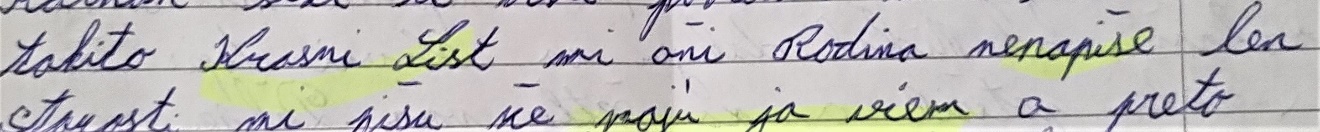 takito Krasni List mi ani Rodina nenapiše len
starost. mi pišu že maju ja viem a preto